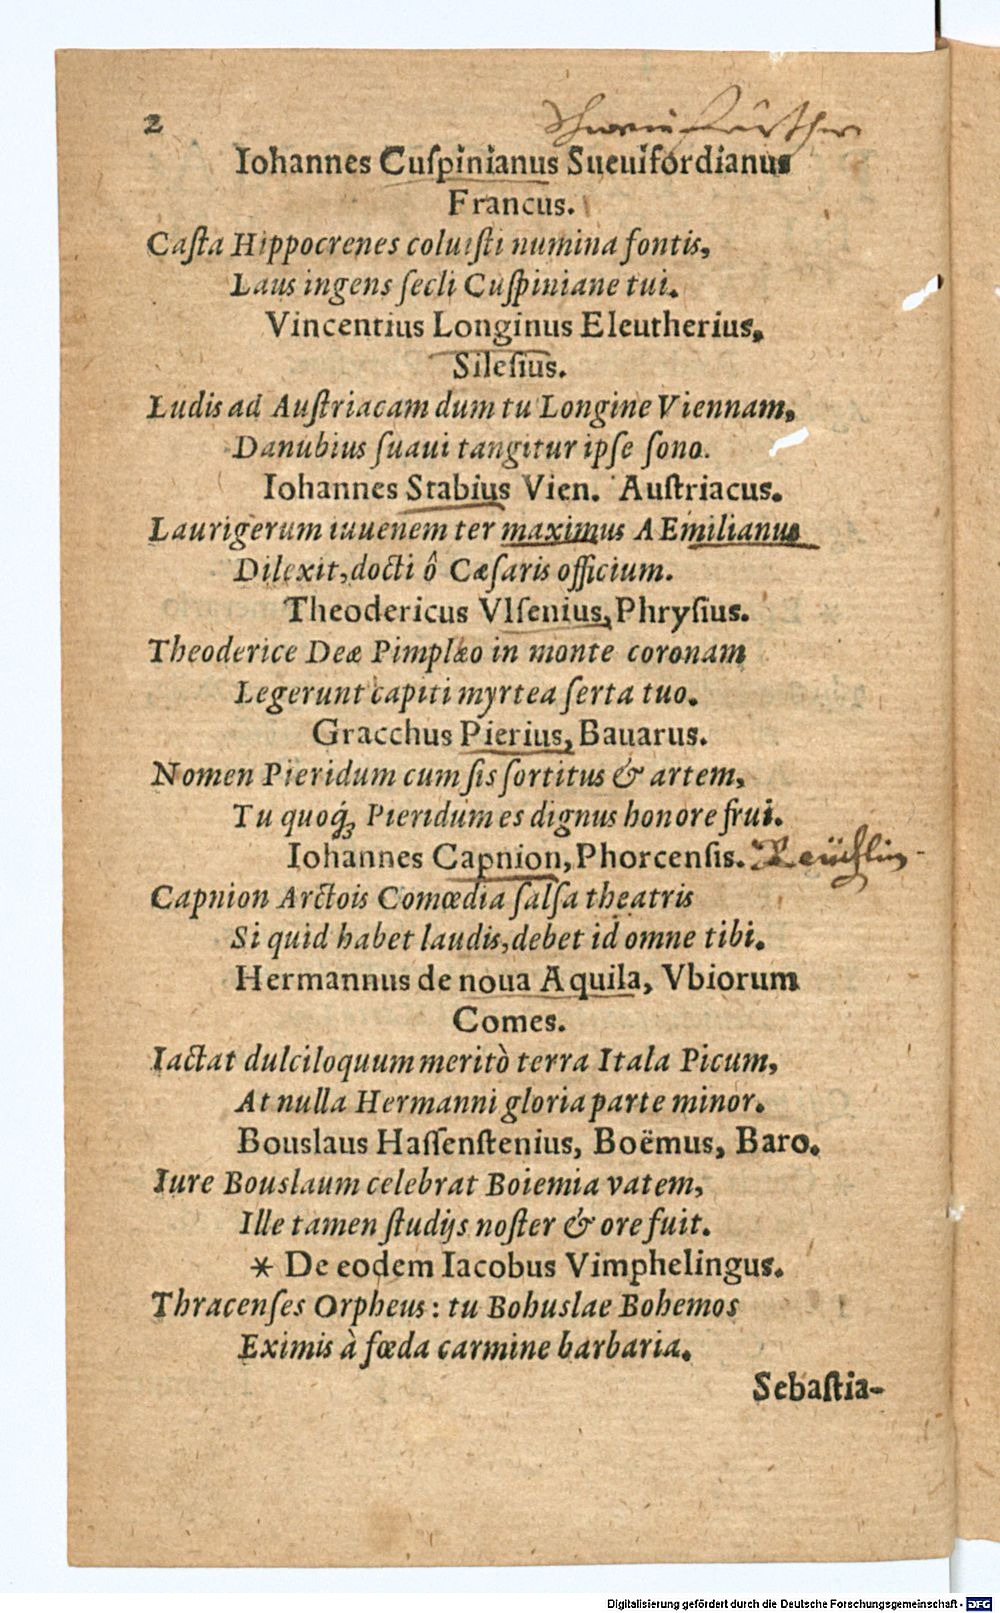 2
Schweinfurther
Iohannes Cuſpinianus Sueuifordianus
Francus.
Caſta Hippocrenes coluiſti numina fontis,
Laus ingens ſecli Cuſpiniane tui.
Vincentius Longinus Eleutherius,
Sileſius.
Ludis ad Auſtriacam dum tu Longine Viennam,
Danubius ſuaui tangitur ipſe ſono.
Iohannes Stabius Vien. Auſtriacus.
Laurigerum iuuenem ter maximus AEmilianus
Dilexit, docti ô Cæſaris officium.
Theodericus Vlſenius, Phryſius.
Theoderice Deæ Pimplæo in monte coronam
Legerunt capiti myrtea ſerta tuo.
Gracchus Pierius, Bauarus.
Nomen Pieridum cum ſis ſortitus & artem,
Tu quoq́ꝫ Pieridum es dignus honore frui.
Iohannes Capnion, Phorcenſis. Reüchlin
Capnion Arctois Comœdia ſalſa theatris
Si quid habet laudis, debet id omne tibi.
Hermannus de noua Aquila, Vbiorum
Comes.
Iactat dulciloquum meritò terra Itala Picum,
At nulla Hermanni gloria parte minor.
Bouslaus Haſſenſtenius, Boëmus, Baro.
Iure Bouslaum celebrat Boiemia vatem,
Ille tamen ſtudijs noſter & ore fuit.
* De eodem Iacobus Vimphelingus.
Thracenſes Orpheus: tu Bohuslae Bohemos
Eximis à fœda carmine barbaria.
Sebaſtia-
Digitalisierung gefördert durch die Deutsche Forschungsgemeinschaft - DFG